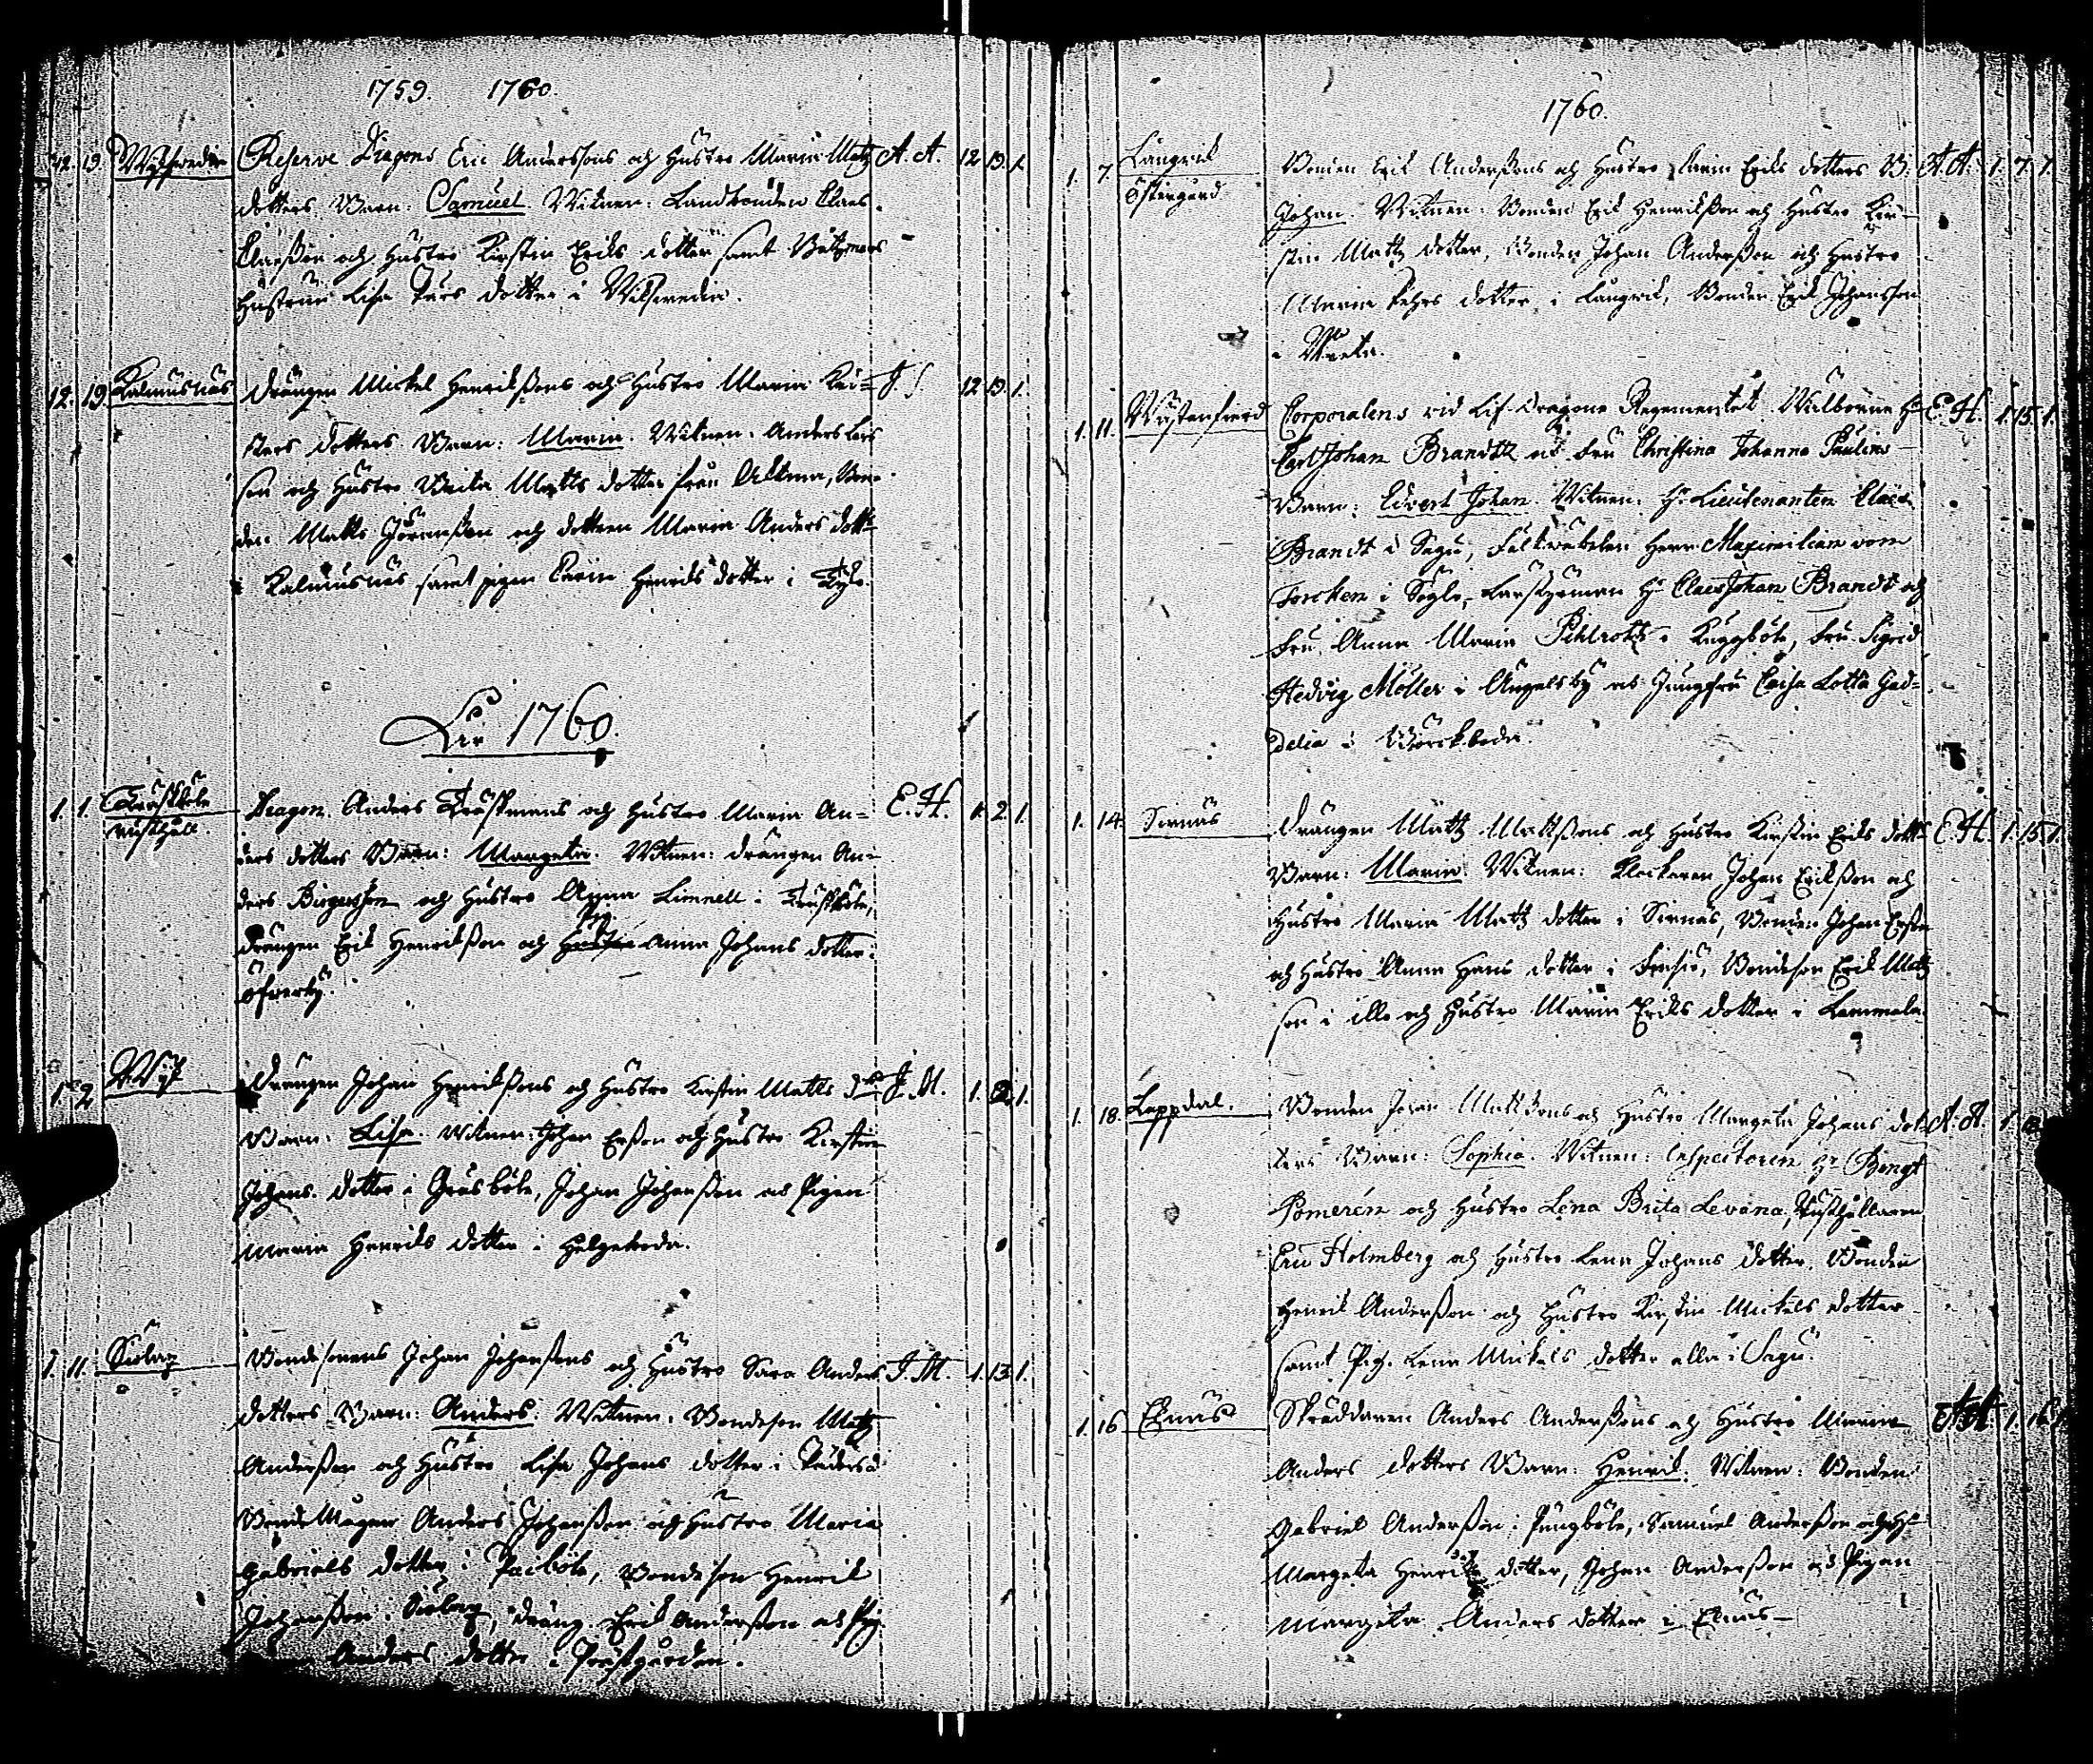 1759. 1760.
12. 19. Reserve Dragons Eric Anderssons och Hustro Maria Matz A. A. 12 19. 1.
dotters Barn: Samuel Witnen: Landbonden Claes
Claesson och Hustro Kirstin Eriks dotter samt Båtzmans
Hustrun Lisa Pärs dotter i
12. 19. Kalmusnäs Drängen Mickel Henrikssons och Hustro Maria Kri= J. 12 19. 1.
sters dotters Barn: Maria. Witnen: Anders Lars
son och Hustro Beata Matts dotter från Attma, Bon-
den Matts Göransson och dottren Maria Anders dott
i Kalmusnäs samt pigan Carin Henriks dotter i
År 1760.
1. 1. Trusthåll. Dragon Anders och Hustro Maria An= E. H. 1. 2. 1.
ders dotters Barn: Margeta. Witnen: Drängen An-
ders Birgersson och Hustro Anna Limnell i
Drängen Erik Henriksson och Hustro Anna Johans dotter i
Öfwerby.
1. 2 Wijk Drängen Johan Henrikssons och Hustro Kirstin Matts J. M. 1. 1.
Barn: Lisa. Witnen: Johan Ersson och Hustro Kirstin
Johans dotter i Gräsböle, Johan Johansson och Pigan
Maria Henriks dotter i Helgeboda.
1. 11. Siölax Bondesonens Johan Johanssons och Hustro Sara Anders J. M. 1. 13. 1.
dotters Barn: Anders. Witnen: Bondeson Matz
Andersson och Hustro Lisa Johans dotter i
Bonde Mågen Anders Johansson och Hustro Maria
Gabriels dotter i Paiböle, Bondeson Henrik
Johansson i Siölax, Dräng Erik Andersson och Pig.
Anders dotter i Prästgården.
1760.
1. 7. Långvik Bonden Erik Anderssons och Hustro Karin Eriks dotters B: A. A. 1. 7. 1.
Östergård Johan. Witnen: Bonden Erik Henriksson och Hustro Kir-
stin Matts dotter, Bonden Johan Andersson och Hustro
Maria Pehrs dotter i Långvik, Bonden Erik Johansson
i
1. 11. Westanfierd Corporalens vid Lif-Dragone Regementet Wälborne Hr E. H. 1. 15. 1.
Carl Johan Brandtz och Fru Christina Johanna Paulins
Barn: Edvert Johan. Witnen: Hr Lieutenanten Claes
Brandt i Sagu, Fältwäbelen Herr Maximilian von
Torcken i Sögle, Länsman Hr Claes Johan Brandt och
Fru Anna Maria Pihlrotz i Kuggböle, Fru Sigrid
Hedvig Möller i Ängelsby och Jungfru Caisa Lotta Gad=
delia i
1. 14. Sirnäs Drängen Matz Matssons och Hustro Kirstin Eriks dott E. H. 1. 15. 1.
Barn: Maria. Witnen: Klockaren Johan Eriksson och
Hustro Maria Matz dotter i Sirnäs, Bonden Johan Ersson
och Hustro Anna Hans dotter i Finsiö, Bondeson Erik Matz
son i Illo och Hustro Maria Eriks dotter i Lammala.
1. 18. Leppdal. Bonden Johan Matssons och Hustro Margeta Johans dot= A. A. 1.
ters Barn: Sophia. Witnen: Inspectoren Hr Bengt
Pomerén och Hustro Lena Brita Levana, Rusthållaren
Eric Holmberg och Hustro Lena Johans dotter, Bonden
Henrik Andersson och Hustro Kirstin Mickels dotter
samt Pig. Lena Mickels dotter alla i Sagu.
1. 16 Eknäs Skräddaren Anders Anderssons och Hustro A. A. 1. 16.
Anders dotters Barn: Henrik. Witnen: Bonden
Gabriel Andersson i Pungböle, Samuel Andersson och H
Margeta Henriks dotter, Johan Andersson och Pigan
Margeta Anders dotter i Eknäs